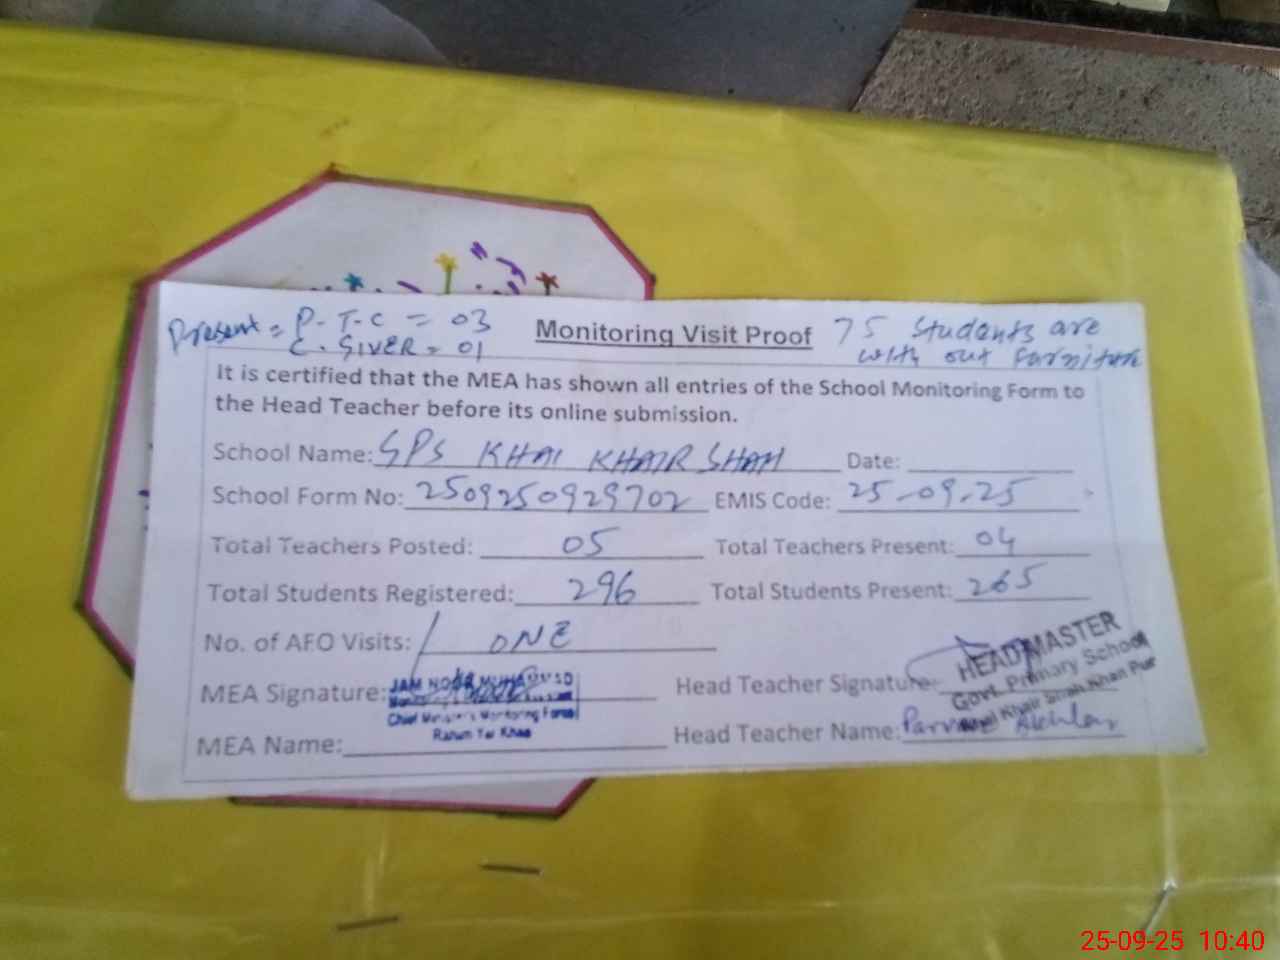 Present = P-T-C = 03
C. GIVER = 01
Monitoring Visit Proof
75 Students are
with out furniture
It is certified that the MEA has shown all entries of the School Monitoring Form to
the Head Teacher before its online submission.
School Name: GPS KHAI KHAIR SHAH Date:
School Form No: 2509250929702 EMIS Code: 25-09-25
Total Teachers Posted: 05 Total Teachers Present: 04
Total Students Registered: 296 Total Students Present: 265
No. of AFO Visits: / ONE
MEA Signature: Head Teacher Signature:
JAM NOOR MUHAMMAD
Chief Minister's Monitoring Force
Rahim Yar Khan
HEAD MASTER
Govt. Primary School
Khair Shah Khan Pur
MEA Name: Head Teacher Name: Parvaiz Akhtar
25-09-25 10:40